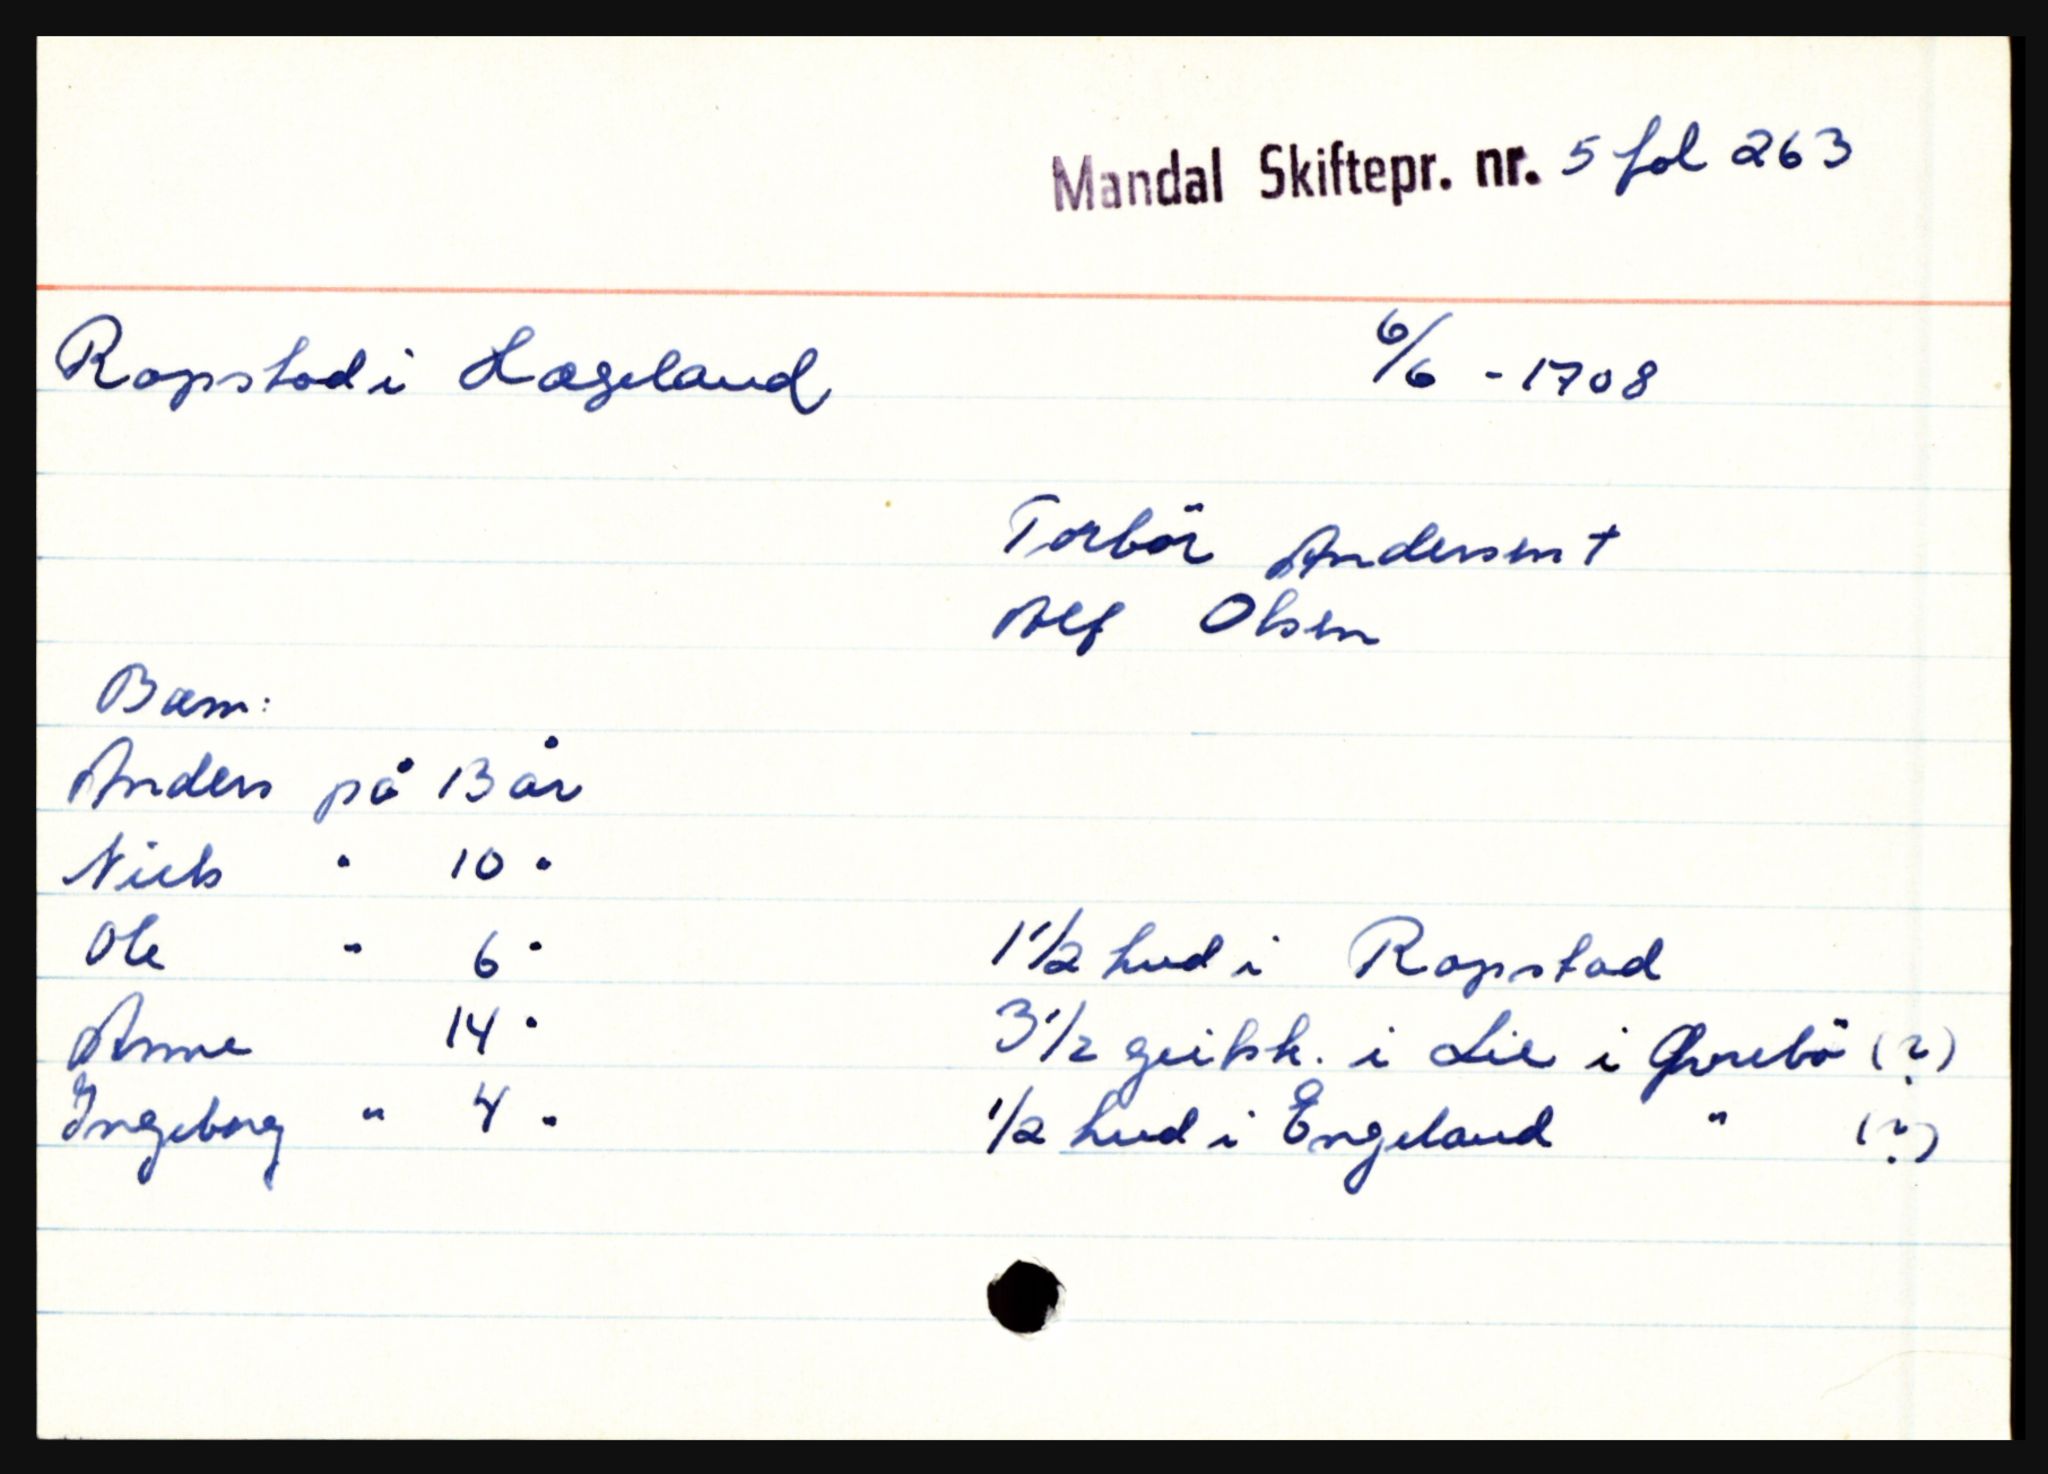 Mandal Skiftepr. nr. 5 fol 263
Ropstad i Hægeland 6/6 - 1708
Torbör Andersen †
Alf Olsen
Barn:
Anders på 13 år
Niels " 10 "
Ole " 6 " 1 1/2 hud i Ropstad
Anne 14 " 3 1/2 geitsk. i Lie i Øvrebö (?)
Ingeborg " 4 " 1/2 hud i Engeland " (?)